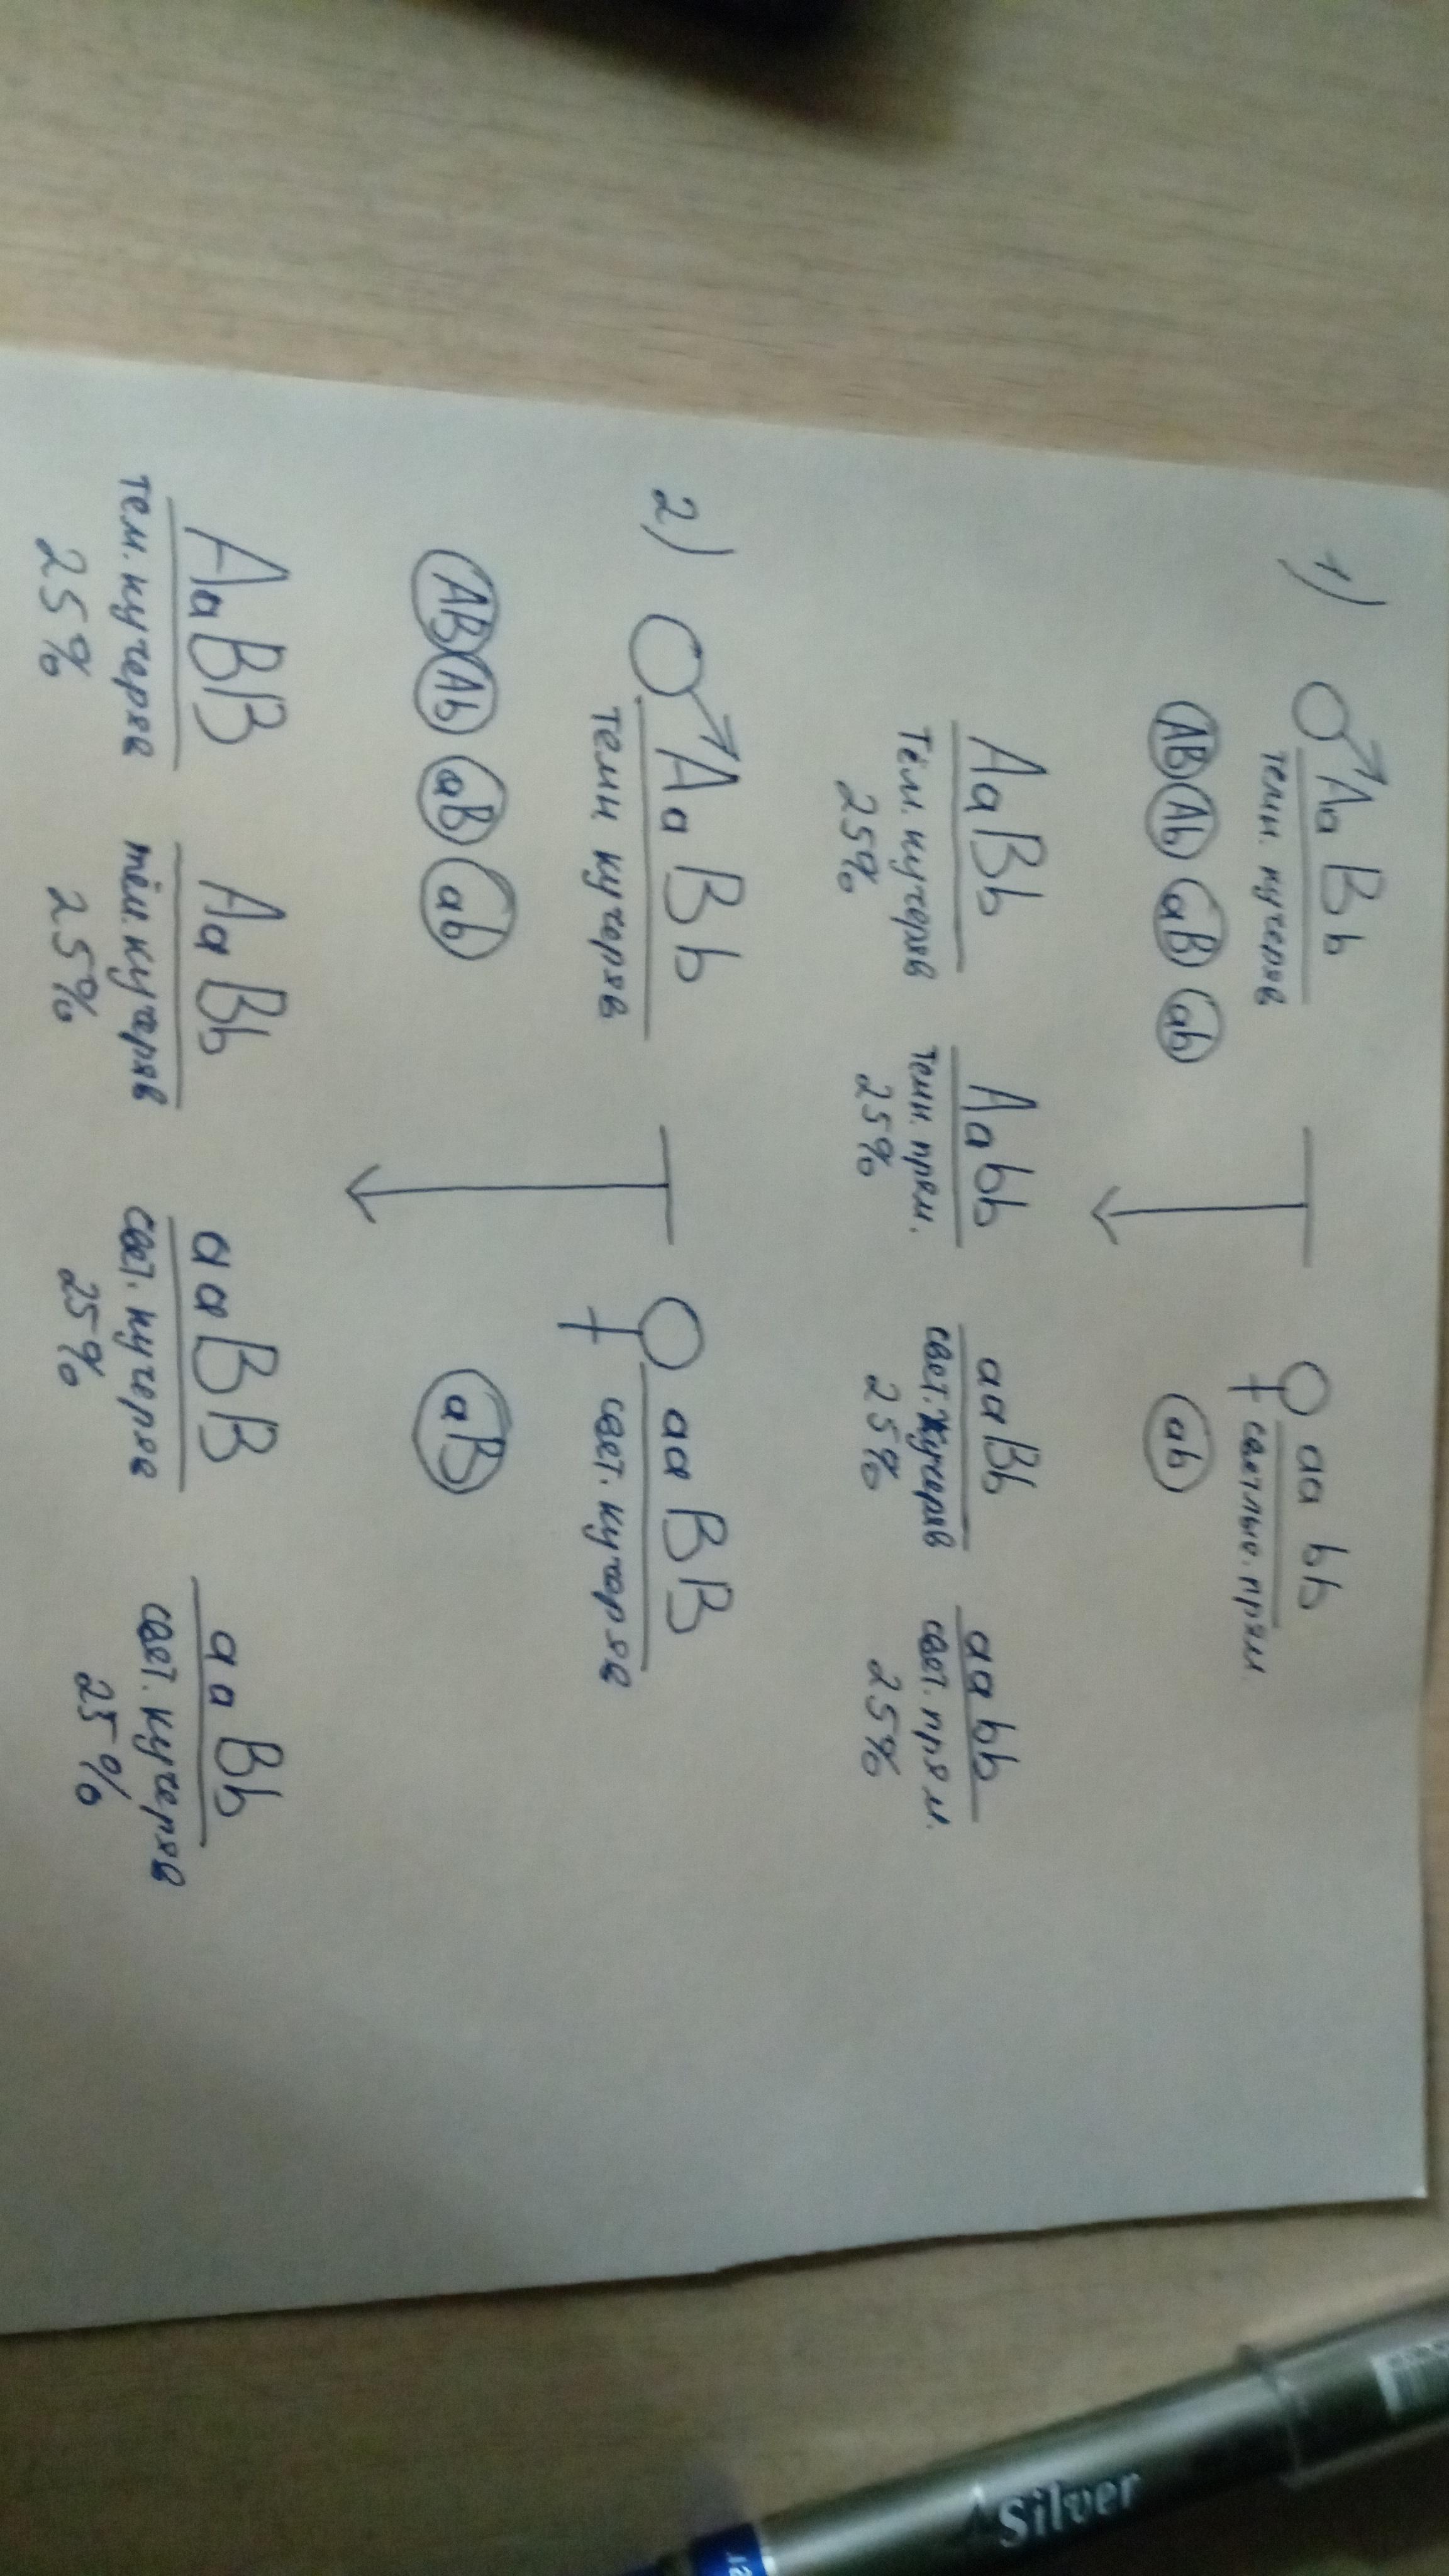 1) ♂ AaBb — ♀ aa bb
темн. кучеряв светлые. прям.
AB Ab aB ab ab
AaBb Aabb aaBb aabb
Тём. кучеряв темн. прям. свет. кучеряв свет. прям.
25% 25% 25% 25%
2) ♂ AaBb — ♀ aa BB
темн кучеряв свет. кучеряв
AB Ab aB ab aB
AaBB AaBb aaBB aaBb
тем. кучеряв тём. кучеряв свет. кучеряв свет. кучеряв
25% 25% 25% 25%
Silver